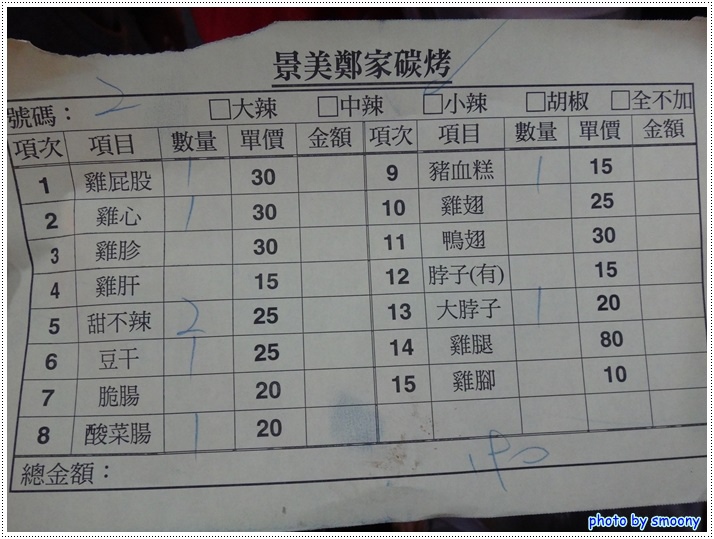 景美鄭家碳烤
號碼： 2 □大辣 □中辣 □小辣 □胡椒 □全不加
項次 項目 數量 單價 金額 項次 項目 數量 單價 金額
1 雞屁股 1 30 9 豬血糕 1 15
2 雞心 1 30 10 雞翅 25
3 雞胗 30 11 鴨翅 30
4 雞肝 15 12 脖子(有) 15
5 甜不辣 2 25 13 大脖子 1 20
6 豆干 1 25 14 雞腿 80
7 脆腸 20 15 雞腳 10
8 酸菜腸 1 20
總金額： 190
photo by smoony